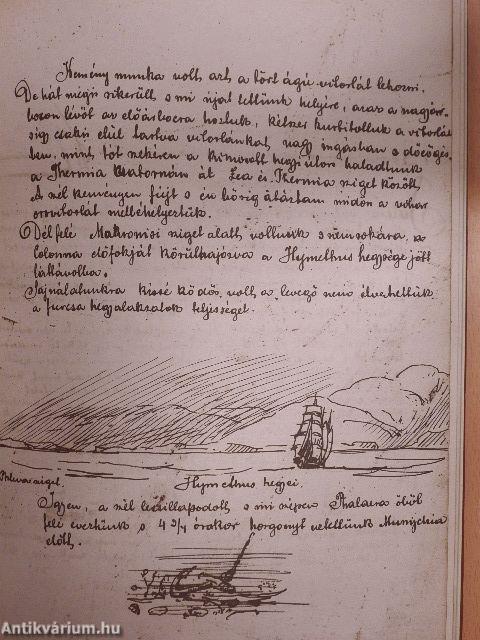 Kemény munka volt, azt a tört águ vitorlát lehozni.
De hát mégis sikerült, s mi ujat tettünk helyére, azaz a nagyár-
bocon lévőt az előárbocra hoztuk, kétszer kurtitottuk a vitorlát
s igy csakis elül tartva vitorlánkat, nagy ingásban s döcögés-
ben, mint tót szekeren a kimosott hegyi úton haladtunk
a Thermia csatornán át Zea és Thermia sziget között.
A szél keményen fújt s én bőrig áztam midőn a vihar
orrvitorlát mellehelyeztük.
Dél felé Makronisi sziget alatt voltunk s nemsokára, a
Colonna előfokját körülhajózva a Hymethus hegysége jött
láttávolba.
Sajnálatunkra kissé ködös volt a levegő nem élvezhettük
a furcsa hegyalakzatok teljességét.
sziget.
Hymethus hegyei.
Igen, a szél lecsillapodott s mi szépen Phalaera öböl
felé eveztünk s 4 3/4 órakor horgonyt vetettünk Munychia
előtt.
Antikvárium.hu